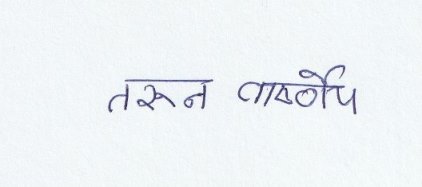 तरून वार्ष्णेय